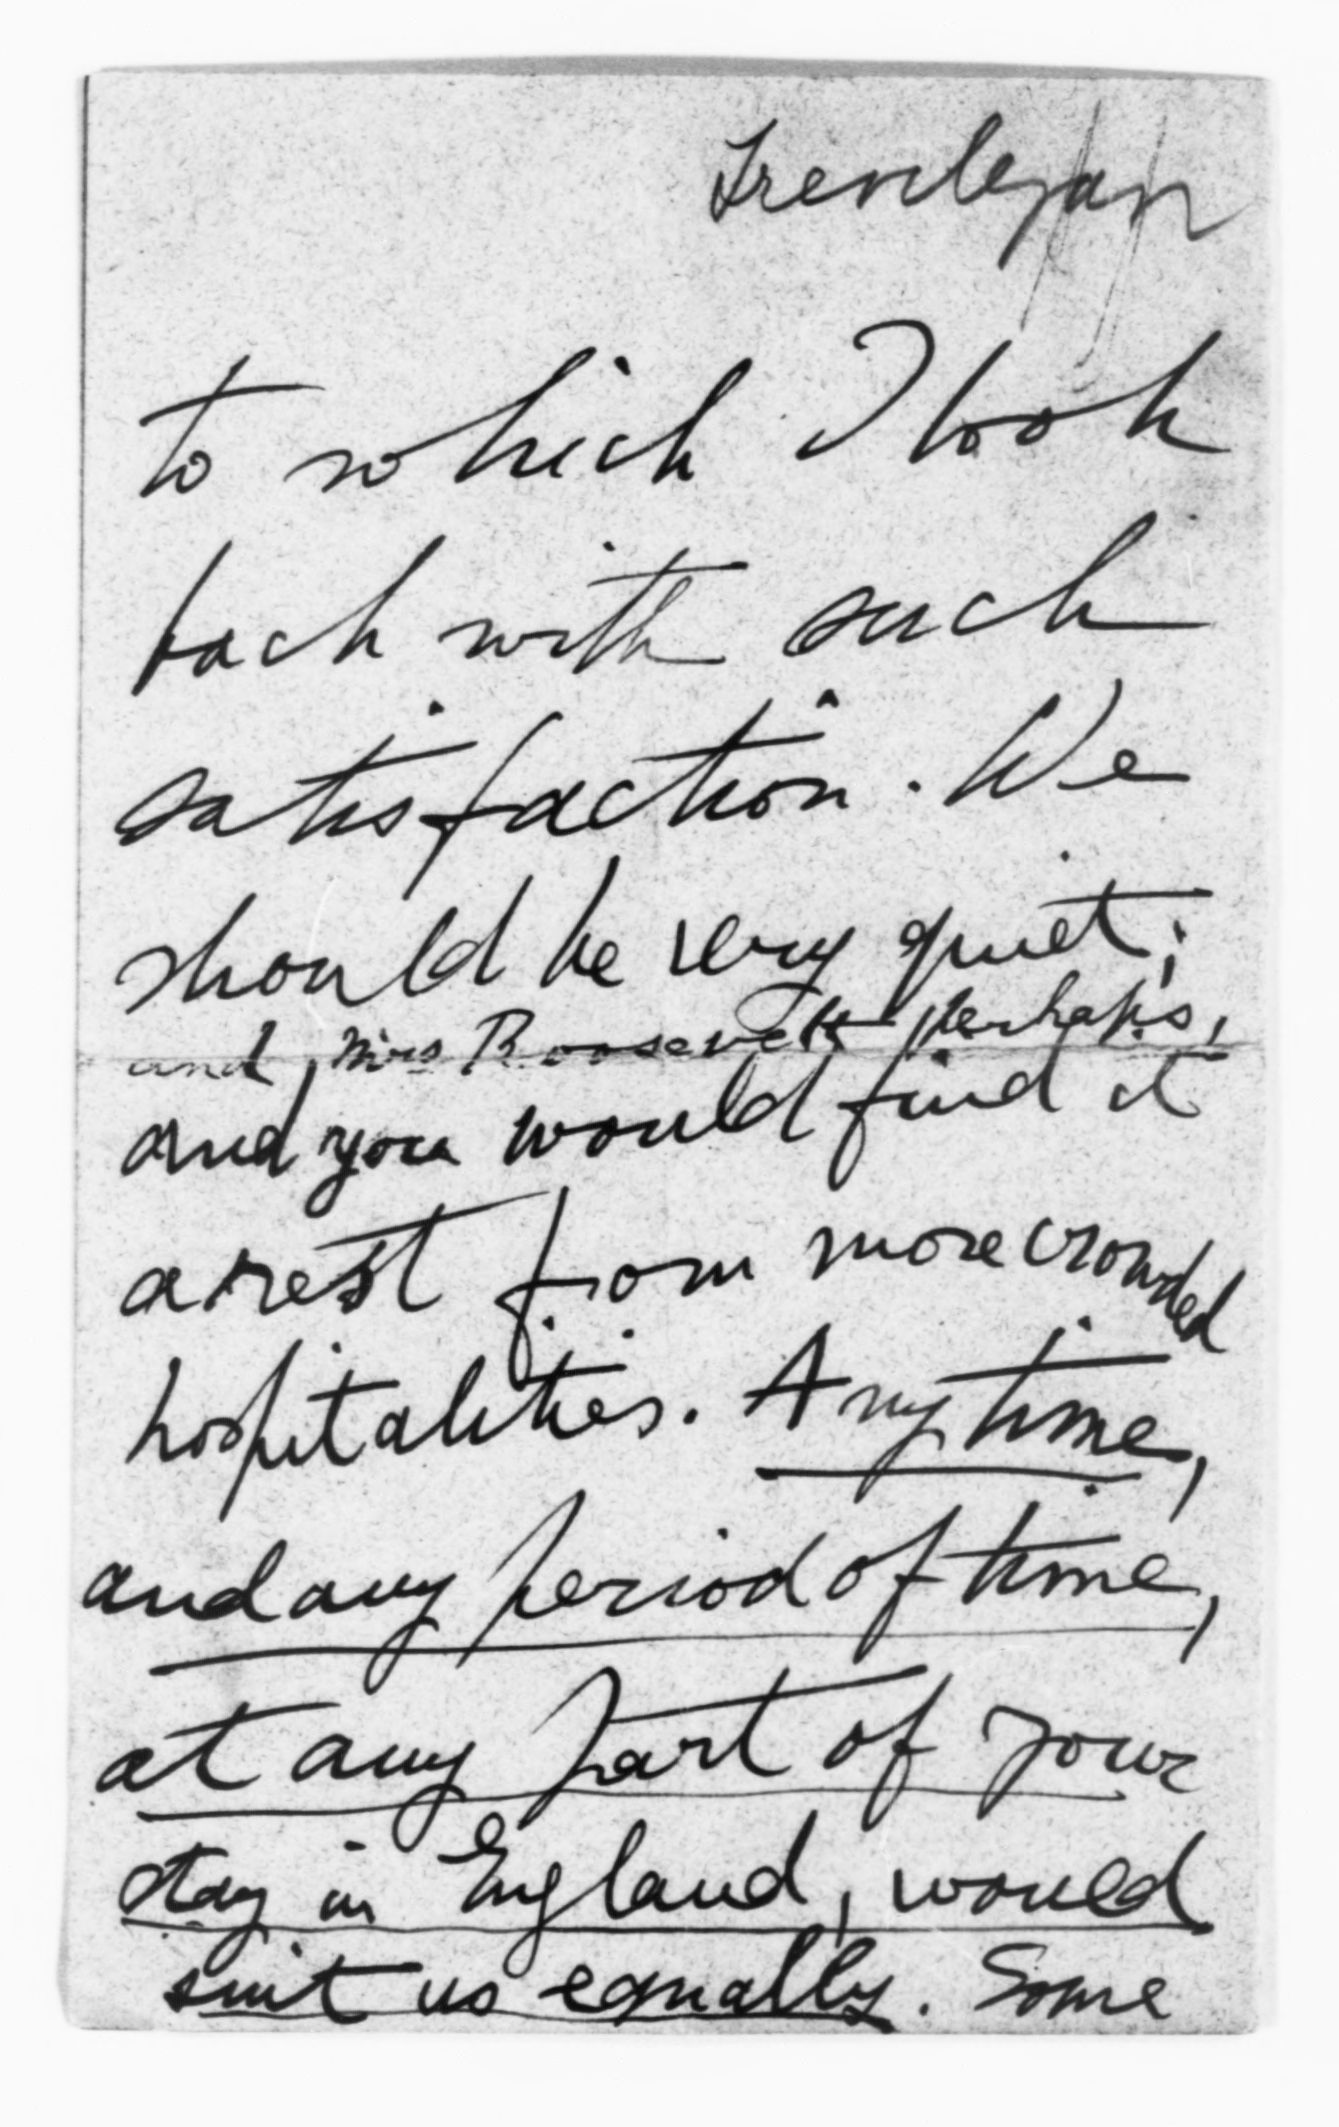 Trevelyan
to which I look
back with such
satisfaction. We
should be very quiet;
and, Mrs Roosevelt perhaps,
and you would find it
a rest from more crowded
hospitalities. Any time,
and any period of time,
at any part of your
stay in England, would
suit us equally. Some